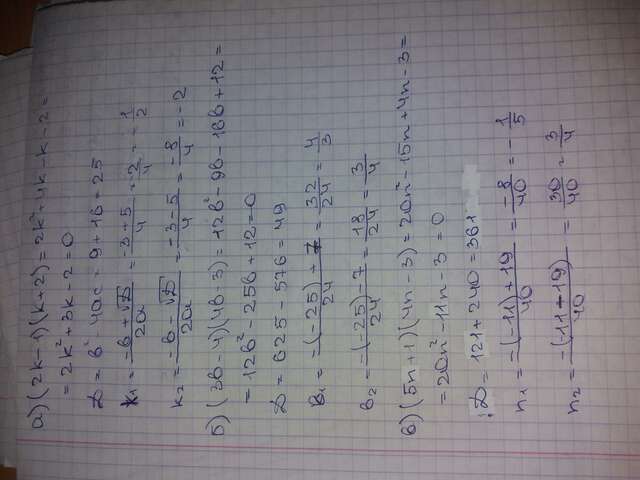 а) (2k-1)(k+2)=2k²+4k-k-2=
=2k²+3k-2=0
D=b²-4ac=9+16=25
k₁=(-b+√D)/2a=(-3+5)/4=2/4=-1/2
k₂=(-b-√D)/2a=(-3-5)/4=-8/4=-2
б) (3b-4)(4b-3)=12b²-9b-16b+12=
=12b²-25b+12=0
D=625-576=49
b₁=(-(-25)+7)/24=32/24=4/3
b₂=(-(-25)-7)/24=18/24=3/4
в) (5n+1)(4n-3)=20n²-15n+4n-3=
=20n²-11n-3=0
D=121+240=361
n₁=(-(-11)+19)/40=-8/40=-1/5
n₂=(-(11+19))/40=30/40=3/4